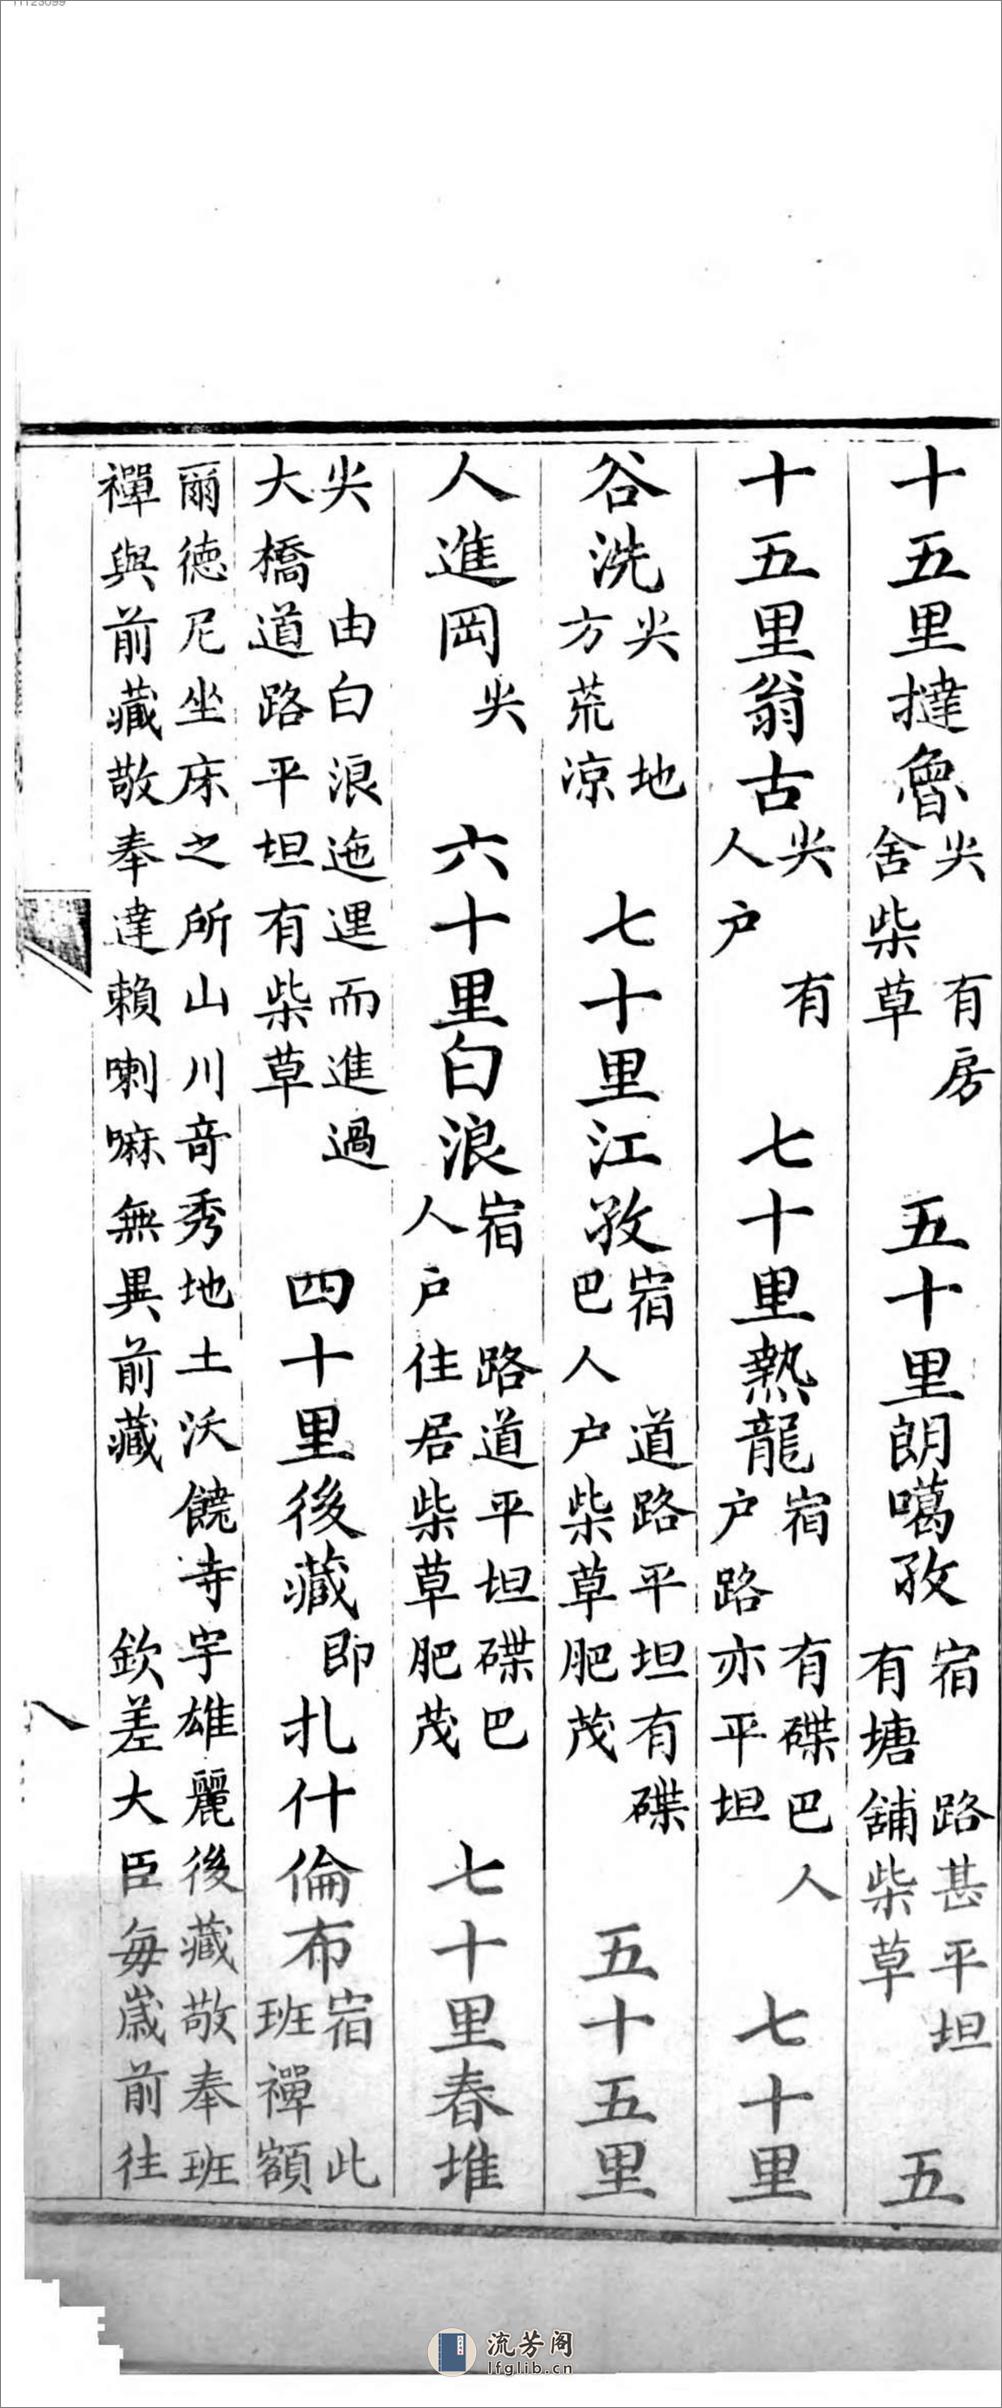 十五里撻魯尖有房舍柴草五十里朗噶孜宿路甚平坦有塘舖柴草五
十五里翁古尖有人户七十里熱龍宿有磔巴人户路亦平坦七十里
谷洗尖地方荒凉七十里江孜宿道路平坦有磔巴人户柴草肥茂五十五里
人進岡尖六十里白浪宿路道平坦磔巴人户住居柴草肥茂七十里春堆
尖由白浪迤邐而進過大橋道路平坦有柴草四十里後藏即扎什倫布宿此班禪額
爾德尼坐床之所山川竒秀地土沃饒寺宇雄麗後藏敬奉班
禪與前藏敬奉達賴喇嘛無異前藏欽差大臣每歲前往
八
流芳阁
lfglib.cn